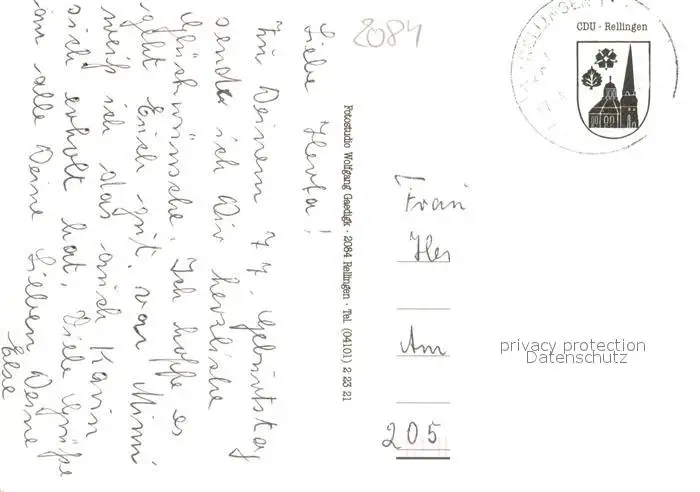 2084
CDU · Rellingen
RELLINGEN
Liebe Herta!
Zu Deinem 77. Geburtstag
sende ich Dir herzliche
Glückwünsche. Ich hoffe es
geht Euch gut. von Mimi
weiß ich das auch Karin
sich erholt hat. Viele Grüße
an alle Deine Lieben Deine
Else
Fotostudio Wolfgang Gaedigk · 2084 Rellingen · Tel. (04101) 2 23 21
Frau
Her
Am
205
privacy protection
Datenschutz